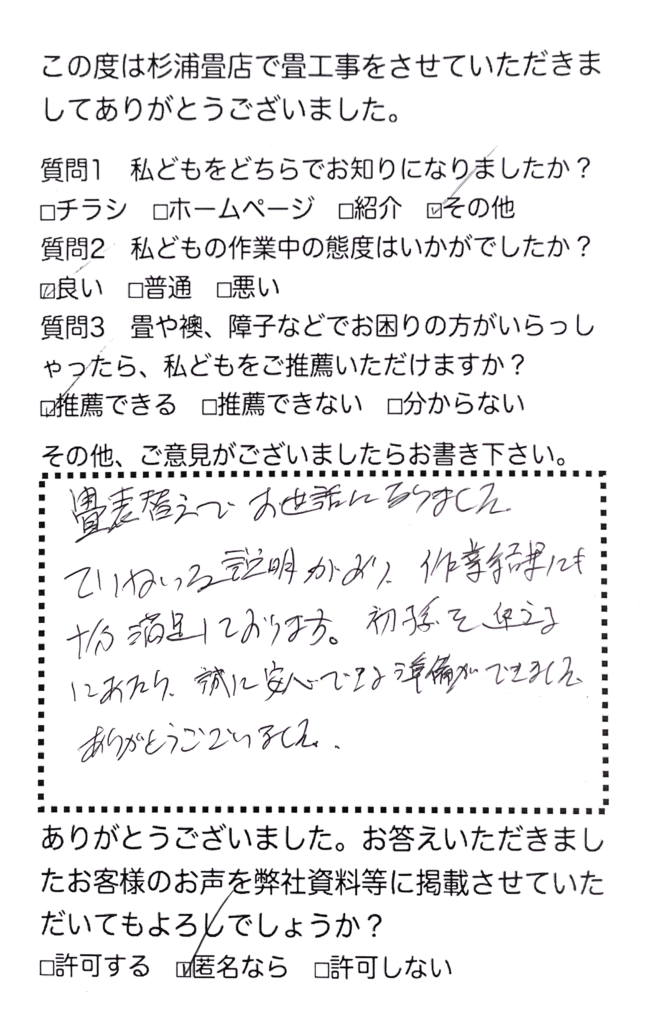 この度は杉浦畳店で畳工事をさせていただきま
してありがとうございました。
質問1　私どもをどちらでお知りになりましたか？
□チラシ　□ホームページ　□紹介　☑その他
質問2　私どもの作業中の態度はいかがでしたか？
☑良い　□普通　□悪い
質問3　畳や襖、障子などでお困りの方がいらっし
ゃったら、私どもをご推薦いただけますか？
☑推薦できる　□推薦できない　□分からない
その他、ご意見がございましたらお書き下さい。
畳表替えで お世話になりました
ていねいな説明があり、作業結果にも
十分満足しております。初孫を迎える
にあたり、誠に安心できる準備ができました
ありがとうございました。
ありがとうございました。お答えいただきまし
たお客様のお声を弊社資料等に掲載させていた
だいてもよろしでしょうか？
□許可する　☑匿名なら　□許可しない